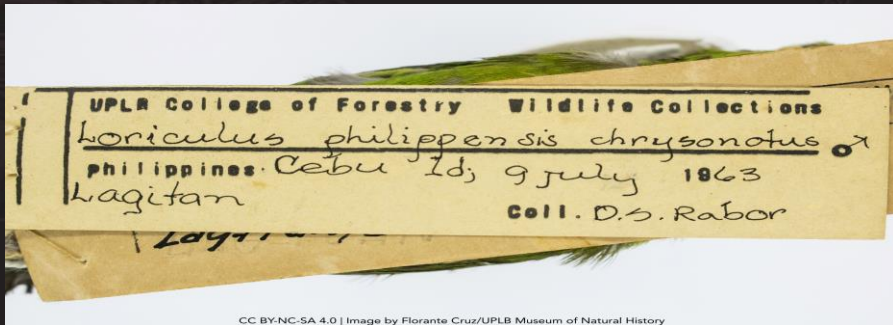 UPLB College of Forestry Wildlife Collections
Loriculus philippensis chrysonotus ♂
Philippines. Cebu Id; 9 July 1963
Lagitan
Coll. D.S. Rabor
CC BY-NC-SA 4.0 | Image by Florante Cruz/UPLB Museum of Natural History